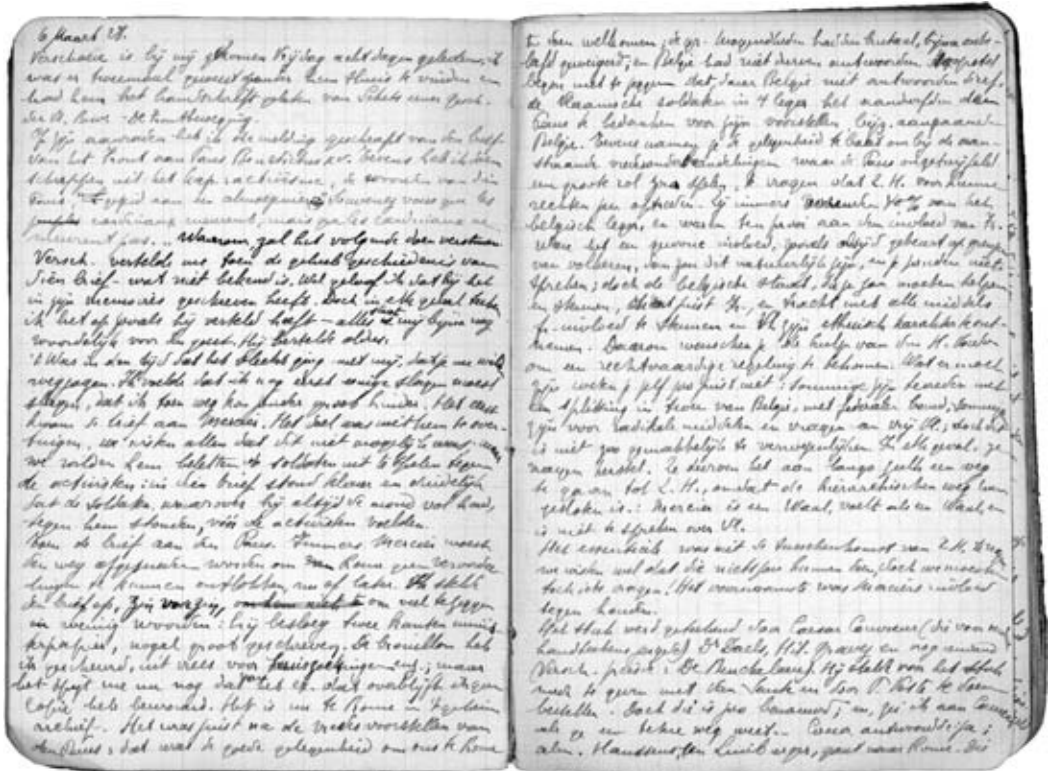 6 Maart 28.
Verschaeve is bij mij gekomen Vrijdag acht dagen geleden; ik
was er tweemaal geweest zonder hem thuis te vinden en
had hem het handschrift gelaten van Schets eener gesch.
der Vl. Bew. - De Frontbeweging.
In zijn aanraden heb ik de melding geschrapt van den brief
van het Front aan Paus Benedictus XV. Tevens heb ik dien
schrappen uit het kap. activisme, de woorden van dien
Paus aan een : Souvenez vous que les
cardinaux meurent, mais que les cardinaux ne
meurent pas... Waarom, zal het volgende doen verstaan
Versch. vertelde me toen de geheele geschiedenis van
dien brief - wat niet bekend is. Wel geloof ik dat hij het
in zijn memories geschreven heeft. Doch in elk geval teeken
ik het op zooals hij verteld heeft - alles staat mij bijna nog
woordelijk voor den geest. Hij vertelde aldus:
't Was in den tijd dat het slecht ging met mij, dat ze me wilden
wegjagen. Ik voelde dat ik nog eerst eenige slagen moest
slagen, dat ik toen weg kon zonder groot hinder. Het eerst
kwam de brief aan Mercier. Het doel was niet hem te over-
tuigen, we wisten allen dat dit niet mogelijk was; maar
we wilden hem beletten de soldaten uit te spelen tegen
de activisten: in den brief stond klaar en duidelijk
dat de soldaten, waarover hij altijd de mond vol had,
tegen hem stonden, vóór de activisten voelden.
Toen de brief aan den Paus. Immers Mercier moest
den weg afgesneden worden om van Rome geen veroordee-
lingen te kunnen ontlokken, nu of later. Ik stelde
den brief op, om veel te zeggen
in weinig woorden: hij besloeg twee kanten minis-
terpapier, nogal groot geschreven. De brouillon heb
ik gescheurd, uit vrees voor huiszoekingen enz.; maar
het spijt me nu nog dat het er dat overblijft ik geen
copie heb bewaard. Het is nu te Rome in 't geheim
archief. - Het was juist na de vredesvoorstellen van
den Paus: dat was de goede gelegenheid om ons te Rome
te doen welkomen; de gr. mogendheden hadden brutaal, bijna onbe-
leefd geweigerd; en België had niet durven antwoorden.
begon met te zeggen dat, daar België niet antwoorden dierf
de Vlaamsche soldaten in 't leger het aandierfden den
Paus te bedanken voor zijn voorstellen bijz. aangaande
België. Tevens namen ze de gelegenheid te baat om bij de aan-
staande vredesonderhandelingen waar de Paus ongetwijfeld
een groote rol zou spelen, te vragen dat Z. H. voor hunne
rechten zou optreden. Zij immers vormden 80% van het
belgisch leger, en waren ten prooi aan den invloed van Fr.
Ware het een gewone invloed, zooals altijd gebeurt op grenzen
van volkeren, dan zou dit natuurlijk zijn, en ze zouden niet
spreken; doch de belgische staat, die ze zou moeten helpen
en steunen, , en tracht met alle middels
fr. invloed te steunen en Vl. zijn ethnisch karakter te ont-
nemen. Daarom wenschen ze de hulp van den H. Vader
om een rechtvaardige regeling te bekomen. Wat er moet
zijn weten ze zelf zoo juist niet: sommige zijn tevreden met
een splitsing in twee van België, met federalen band; sommige
zijn voor radikale middelen en vragen een vrij Vl.; doch dit
is niet zoo gemakkelijk te verwezenlijken. In elk geval, ze
mogen . Ze durven het aan langs zulk een weg
te gaan tot Z. H., omdat de hierarchischen weg hun
gesloten is: Mercier is een Waal, voelt als een Waal, en
is niet te spreken over Vl.
Het essentieele was niet de tusschenkomst van Z. H. te vragen
we wisten wel dat die niets zou kunnen doen, doch we moesten
toch iets vragen. Het voornaamste was Mercier's invloed
tegen houden.
Het stuk werd geteekend door Caesar Couvreur (die voor
handteekens zorgde) Dr Daels, Hil. Gravez en nog iemand
Versch. : De Beuckelaere. Hij stelde voor het stuk
mede te geven met den Sank en door P. te doen
bestellen. Doch die is zoo benauwd; en, zei ik aan Couvreur
als ge een betere weg weet. - Caesar antwoordde: ja;
alm. Hanssens, een Limburger, gaat naar Rome. Die